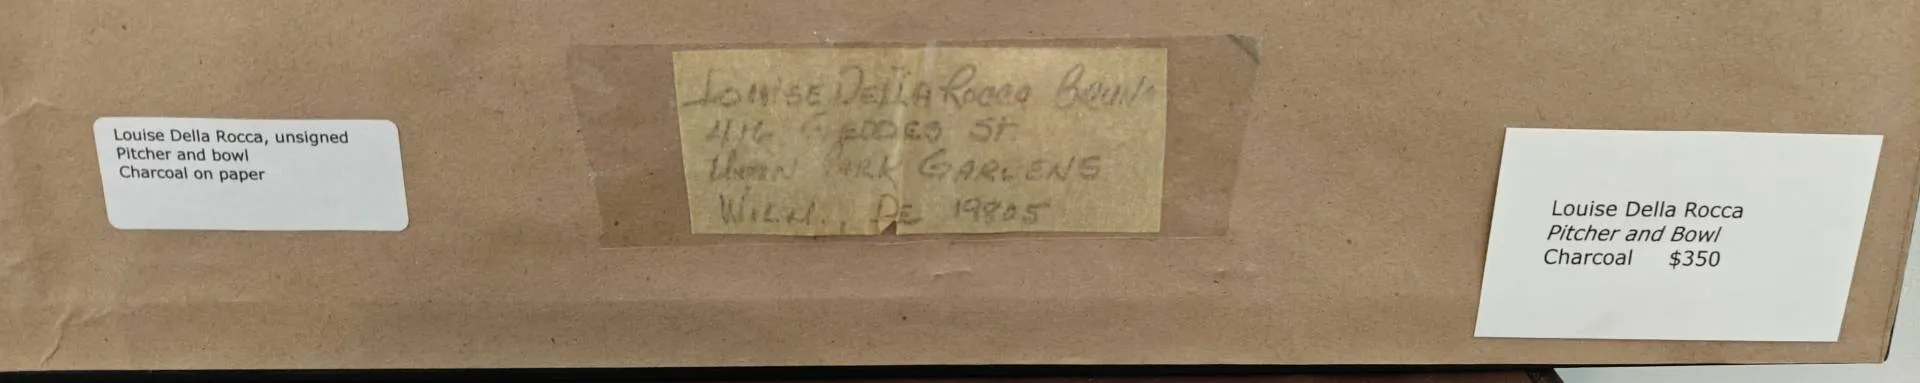 Louise Della Rocca, unsigned
Pitcher and bowl
Charcoal on paper
LOUISE DELLA ROCCO
416 GEDDES ST.
PARK GARDENS
WILM., DE 19805
Louise Della Rocca
Pitcher and Bowl
Charcoal $350